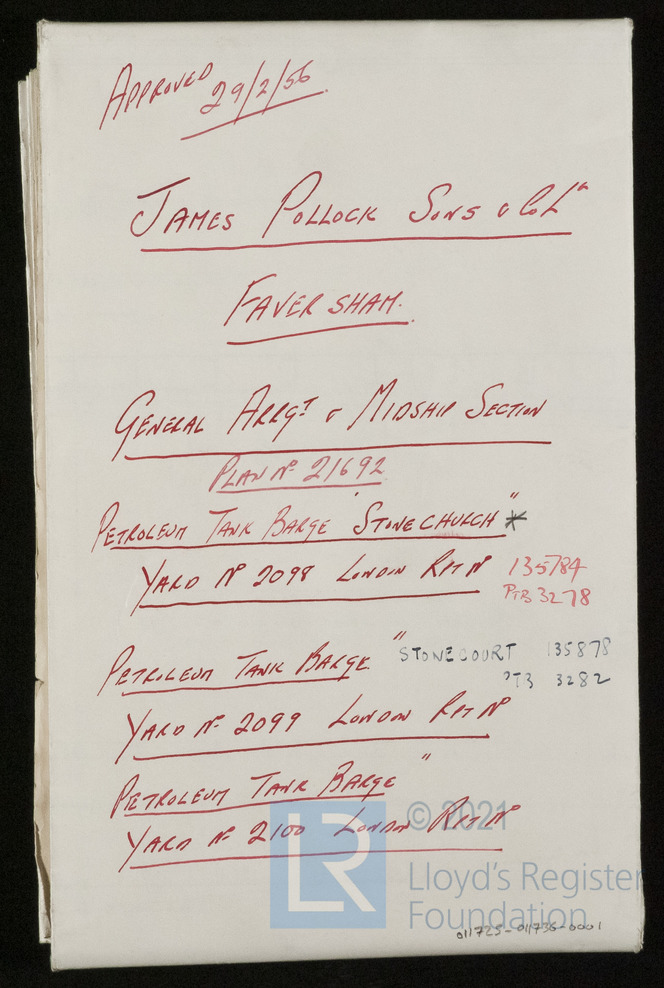 APPROVED 29/2/56
JAMES POLLOCK SONS & Co Ld
FAVERSHAM.
GENERAL ARRGT & MIDSHIP SECTION
PLAN No 21692
PETROLEUM TANK BARGE "STONECHURCH" *
YARD No 2098 LONDON RPT No 135784
PTB 3278
PETROLEUM TANK BARGE " STONECOURT 135878
PTB 3282
YARD No 2099 LONDON RPT No
PETROLEUM TANK BARGE "
YARD No 2100 LONDON RPT No
LR
© 2021
Lloyd's Register
Foundation
011725-011736-0001